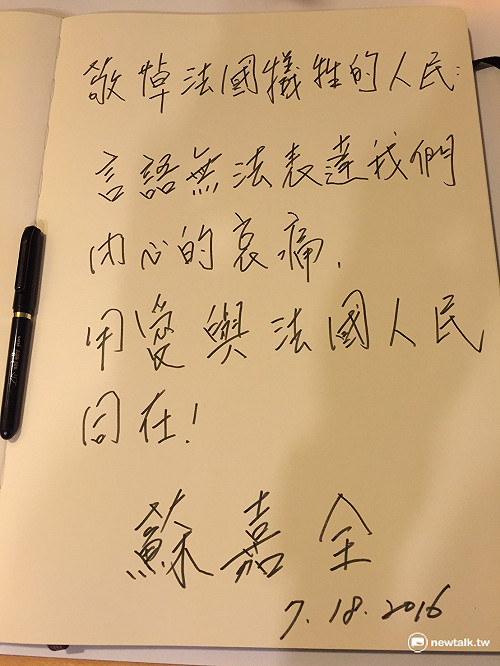 敬悼法國犧牲的人民:
言語無法表達我們
內心的哀痛.
用愛與法國人民
同在!
蘇嘉全
7.18.2016
newtalk.tw